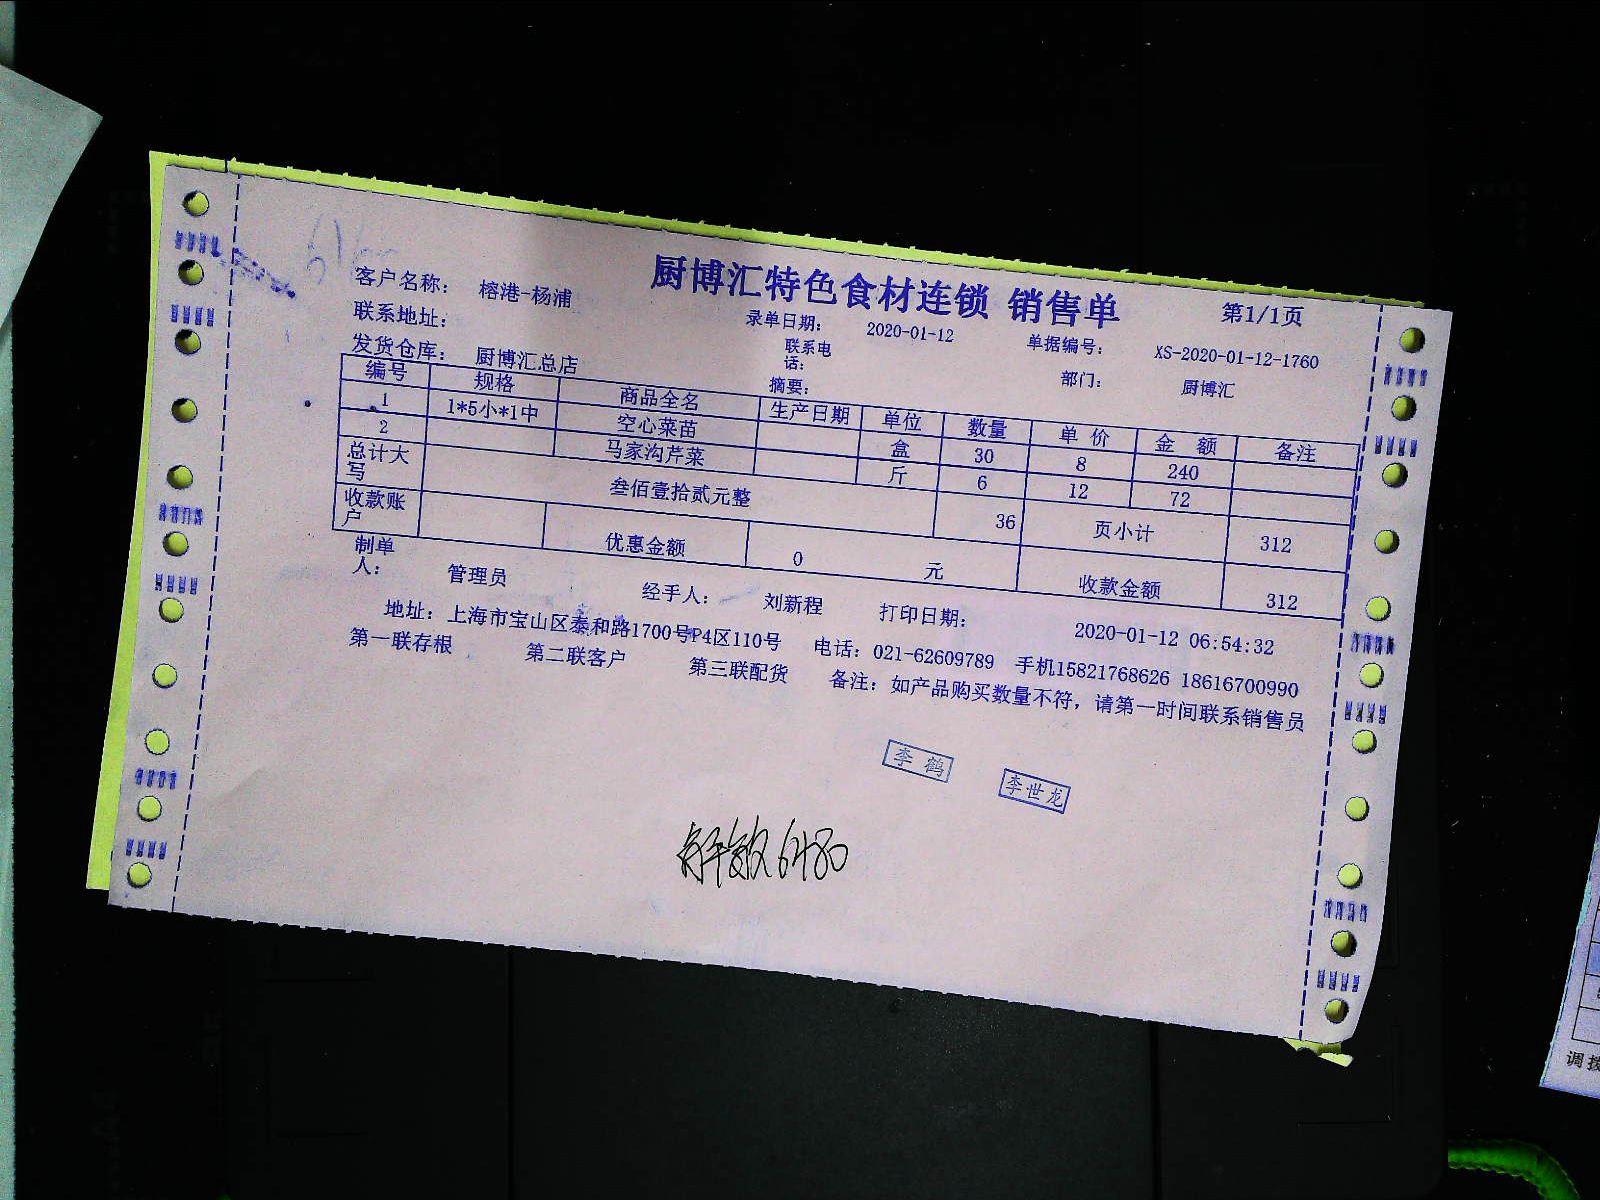 厨博汇特色食材连锁 销售单
第1/1页
客户名称： 榕港-杨浦 录单日期： 2020-01-12 单据编号： XS-2020-01-12-1760
联系地址： 联系电话： 部门： 厨博汇
发货仓库： 厨博汇总店 摘要：
编号 规格 商品全名 生产日期 单位 数量 单 价 金 额 备注
1 1*5小*1中 空心菜苗 盒 30 8 240
2 马家沟芹菜 斤 6 12 72
总计大写 叁佰壹拾贰元整 36 页小计 312
收款账户 优惠金额 0 元 收款金额 312
制单人： 管理员 经手人： 刘新程 打印日期： 2020-01-12 06:54:32
地址：上海市宝山区泰和路1700号P4区110号 电话：021-62609789 手机15821768626 18616700990
第一联存根 第二联客户 第三联配货 备注：如产品购买数量不符，请第一时间联系销售员
李 鹤 李世龙
6480
调拨